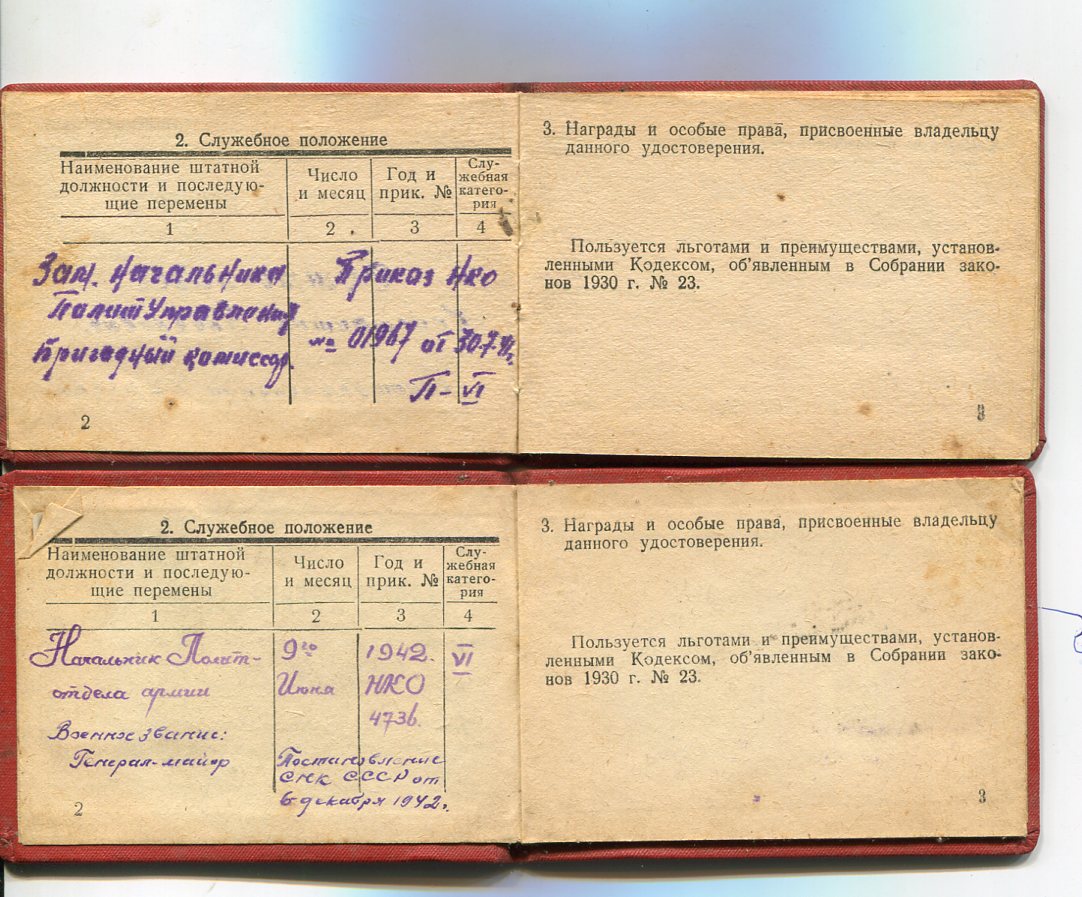 2. Служебное положение
Наименование штатной должности и последую-щие перемены
Число и месяц
Год и прик. №
Слу-жебная катего-рия
1
2
3
4
Зам. начальника Приказ НКО
Политуправления
№ 01967 от 30.7.41г.
бригадный комиссар.
П-VI
2
3. Награды и особые права, присвоенные владельцу
данного удостоверения.
Пользуется льготами и преимуществами, установ-
ленными Кодексом, об'явленным в Собрании зако-
нов 1930 г. № 23.
3
2. Служебное положение
Наименование штатной должности и последую-щие перемены
Число и месяц
Год и прик. №
Слу-жебная катего-рия
1
2
3
4
Начальник Полит- 9го 1942. VI
отдела армии Июня НКО
4736.
Военное звание:
Генерал-майор Постановление
СНК СССР от
6 декабря 1942г.
2
3. Награды и особые права, присвоенные владельцу
данного удостоверения.
Пользуется льготами и преимуществами, установ-
ленными Кодексом, об'явленным в Собрании зако-
нов 1930 г. № 23.
3